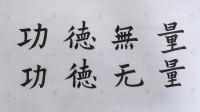 功德無量
功德无量